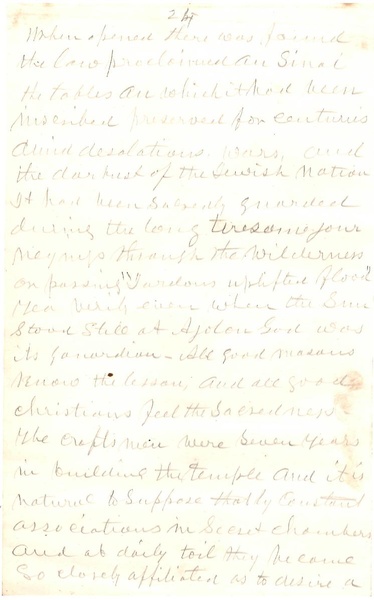 24
When opened there was found
the law proclaimed on Sinai
the tables on which it had been
inscribed preserved for centuries
amid desolations wars, and
the darkest of the Jewish Nation
It had been Sacredly guarded
during the long tiresome jour
neyings through the Wilderness
on passing "Jordons uplifted flood"
Yea verily even when the Sun
Stood Still at Ajolon God was
its guardian - All good masons
know the lesson, and all good
christians feel the Sacredness
The craftsmen were Seven Years
in building the temple and it is
natural to Suppose that by Constant
associations in Secret Chambers
and at daily toil they became
So closely affiliated as to desire a